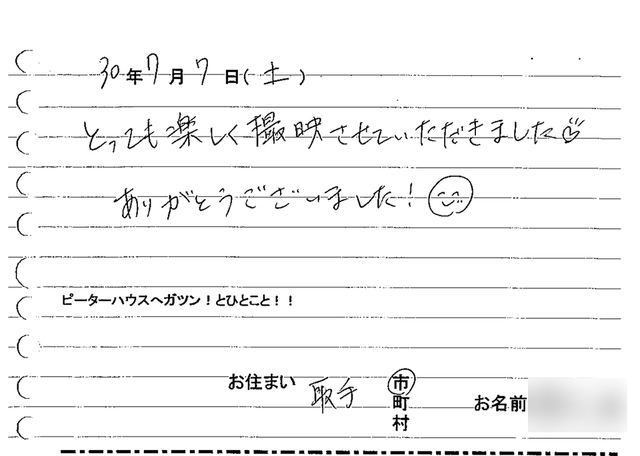 30年7月7日(土)
とっても楽しく撮映させていただきました
ありがとうございました!
ピーターハウスへガツン!とひとこと!!
お住まい 取手 市町村 お名前